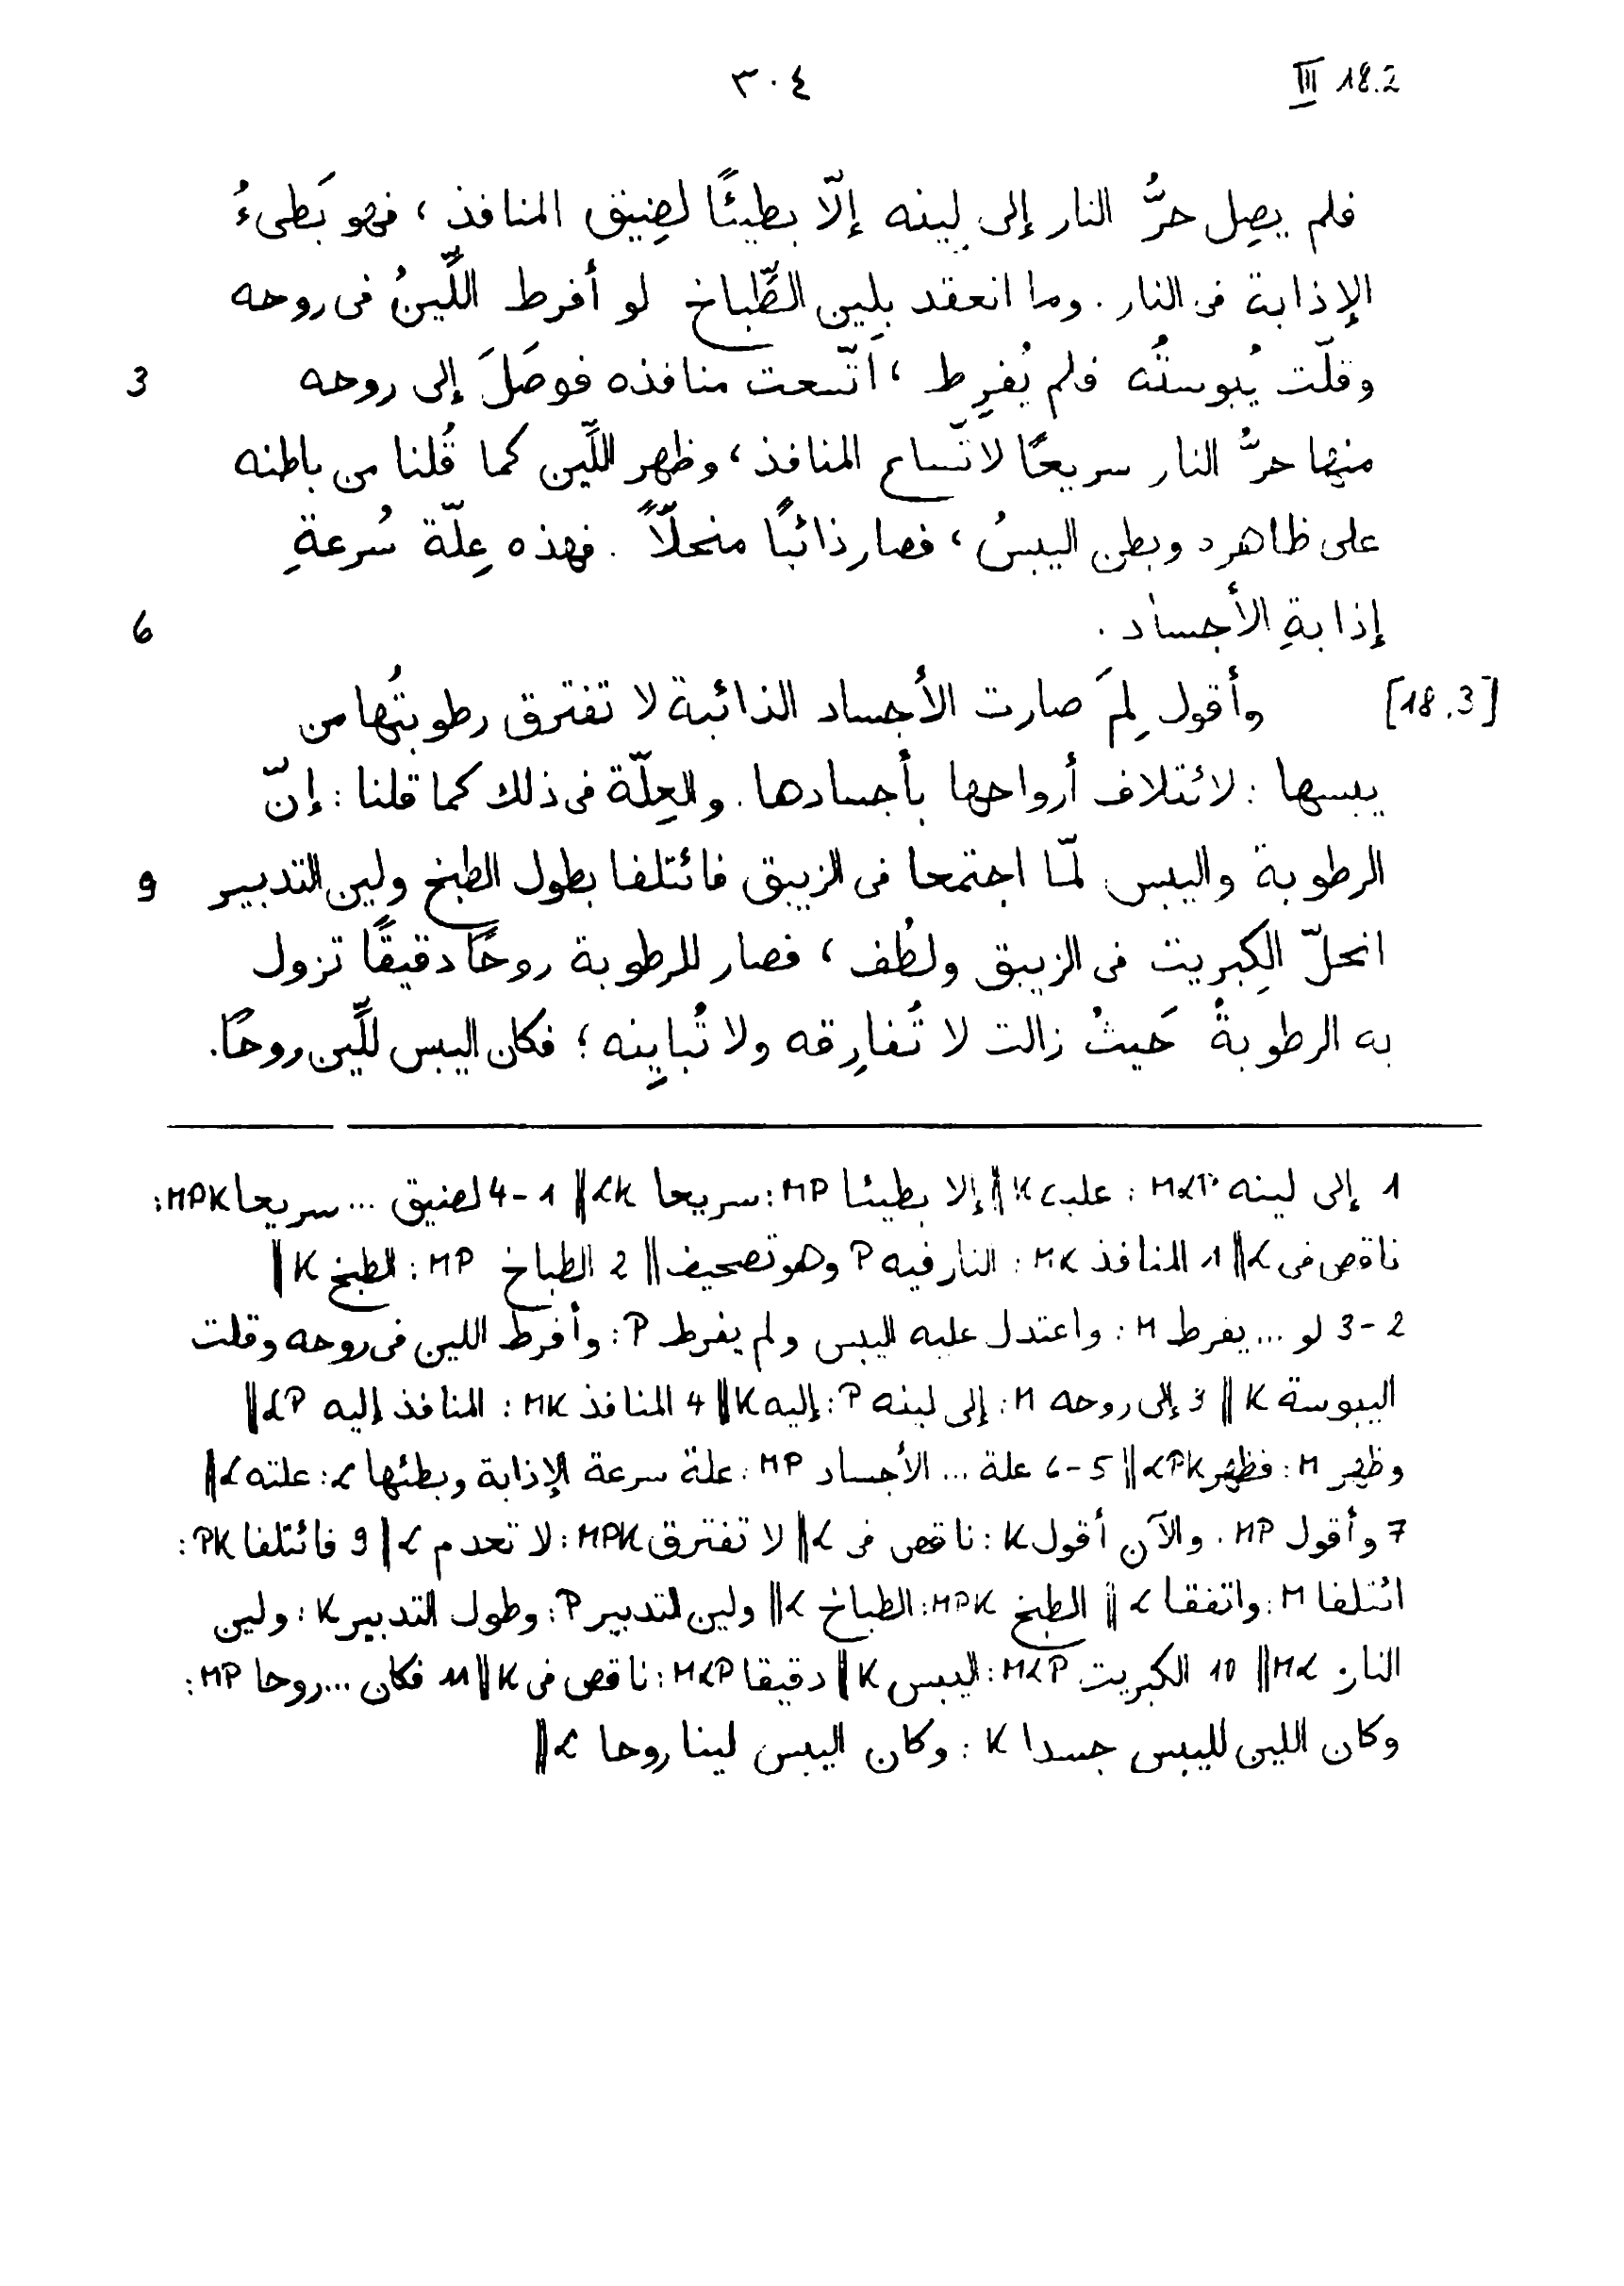 III 18.2 ٣٠٤
فلم يصِل حرُّ النار إلى لينه إلّا بطيئًا لضِيق المنافذ، فهو بَطىءُ
الإذابة فى النار. وما انعقد بِلين الطِّباخ لو أفرط اللِّينُ فى روحه
3 وقلّت يُبوستُه فلم يُفرِط، اتّسعت منافذه فوصَلَ إلى روحه
منها حرُّ النار سريعًا لاتّساع المنافذ، وظهر اللِّين كما قُلنا من باطنه
على ظاهره وبطن اليبسُ، فصار ذائبًا منحلًّا. فهذه عِلّة سُرعةِ
6 إذابةِ الأجساد.
[18.3] وأقول لِمَ صارت الأجساد الذائبة لا تفترق رطوبتُها من
يبسها: لائتلاف أرواحها بأجسادها. والعِلّة فى ذلك كما قلنا: إنّ
9 الرطوبة واليبس لمّا اجتمعا فى الزيبق فائتلفا بطول الطبخ ولين التدبير
انحلّ الكِبريت فى الزيبق ولطُف، فصار للرطوبة روحًا دقيقًا تزول
به الرطوبةُ حَيثُ زالت لا تُفارِقه ولا تُبايِنه؛ فكان اليبس للِّين روحًا.
1 إلى لينه MLP: K ‖ إلا بطيئا MP: سريعا LK ‖ 1-4 لضيق ... سريعا MPK:
ناقص فى L ‖ 1 المنافذ MK: النار فيه P وهو تصحيف ‖ 2 الطباخ MP: الطبخ K ‖
2-3 لو ... يفرط M: واعتدل عليه اليبس ولم يفرط P: وأفرط اللين فى روحه وقلت
اليبوسة K ‖ 3 إلى روحه M: إلى لينه P: إليه K ‖ 4 المنافذ MK: المنافذ إليه LP ‖
وظهر M: فظهر LPK ‖ 5-6 علة ... الأجساد MP: علة سرعة الإذابة وبطئها K: علته L ‖
7 وأقول MP: والآن أقول K: ناقص فى L ‖ لا تفترق MPK: لا تعدم L ‖ 9 فائتلفا PK:
ائتلفا M: واتفقا L ‖ الطبخ MPK: الطباخ L ‖ ولين التدبير P: وطول التدبير K: ولين
النار ML ‖ 10 الكبريت MLP: اليبس K ‖ دقيقا MLP: ناقص فى K ‖ 11 فكان ... روحا MP:
وكان اللين لليبس جسدا K: وكان اليبس لينا روحا L ‖